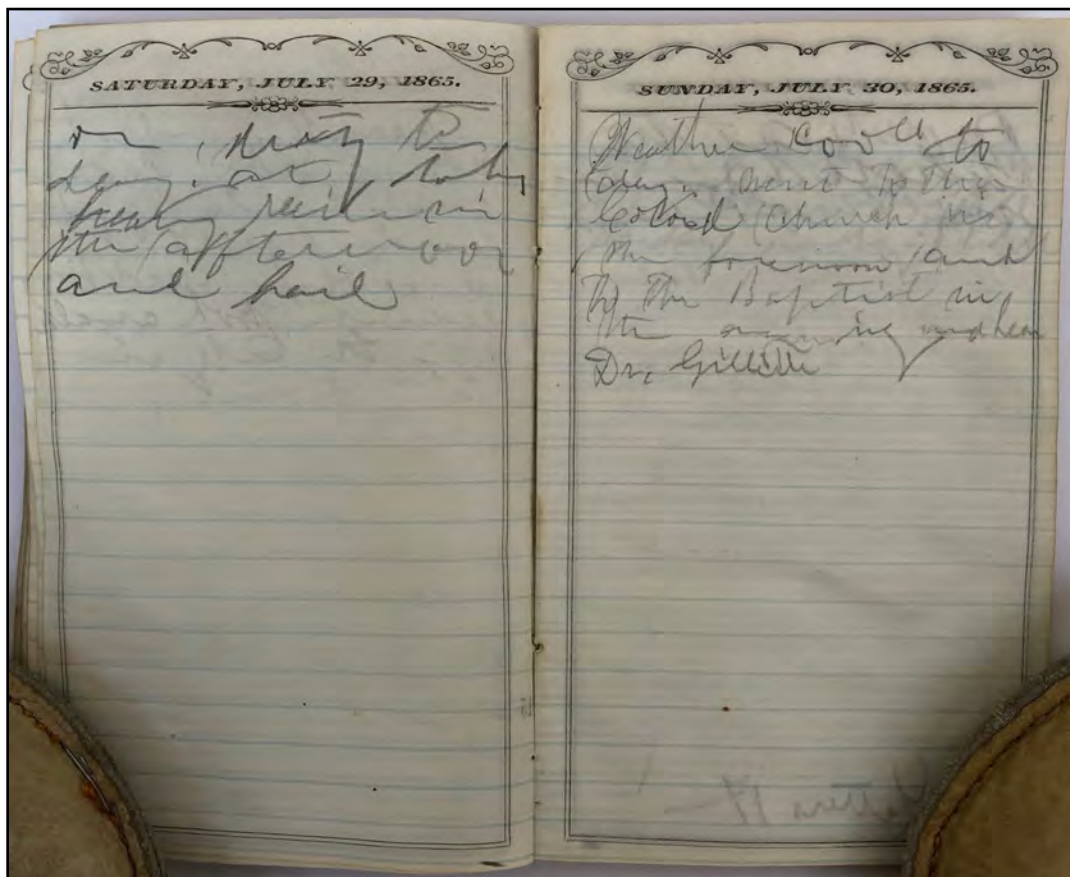 SATURDAY, JULY 29, 1865.
on duty to
day.
heavy rain in
the affternoon
and hail
SUNDAY, JULY 30, 1865.
Weather cooll to
day. went to the
Church in
the forenoon and
to the Baptist in
the
Dr. Gillette